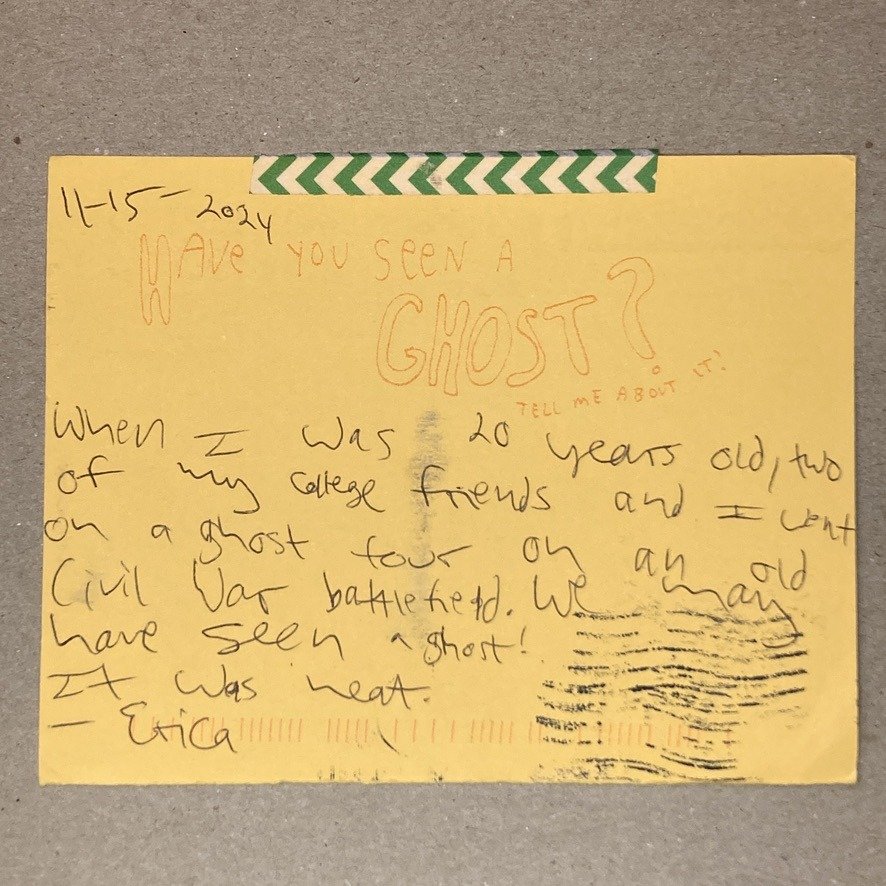 11-15-2024
HAVE YOU SEEN A
GHOST?
TELL ME ABOUT IT!
When I was 20 years old, two
of my college friends and I went
on a ghost tour on an old
Civil War battlefield. We may
have seen a ghost!
It was neat.
- Erica